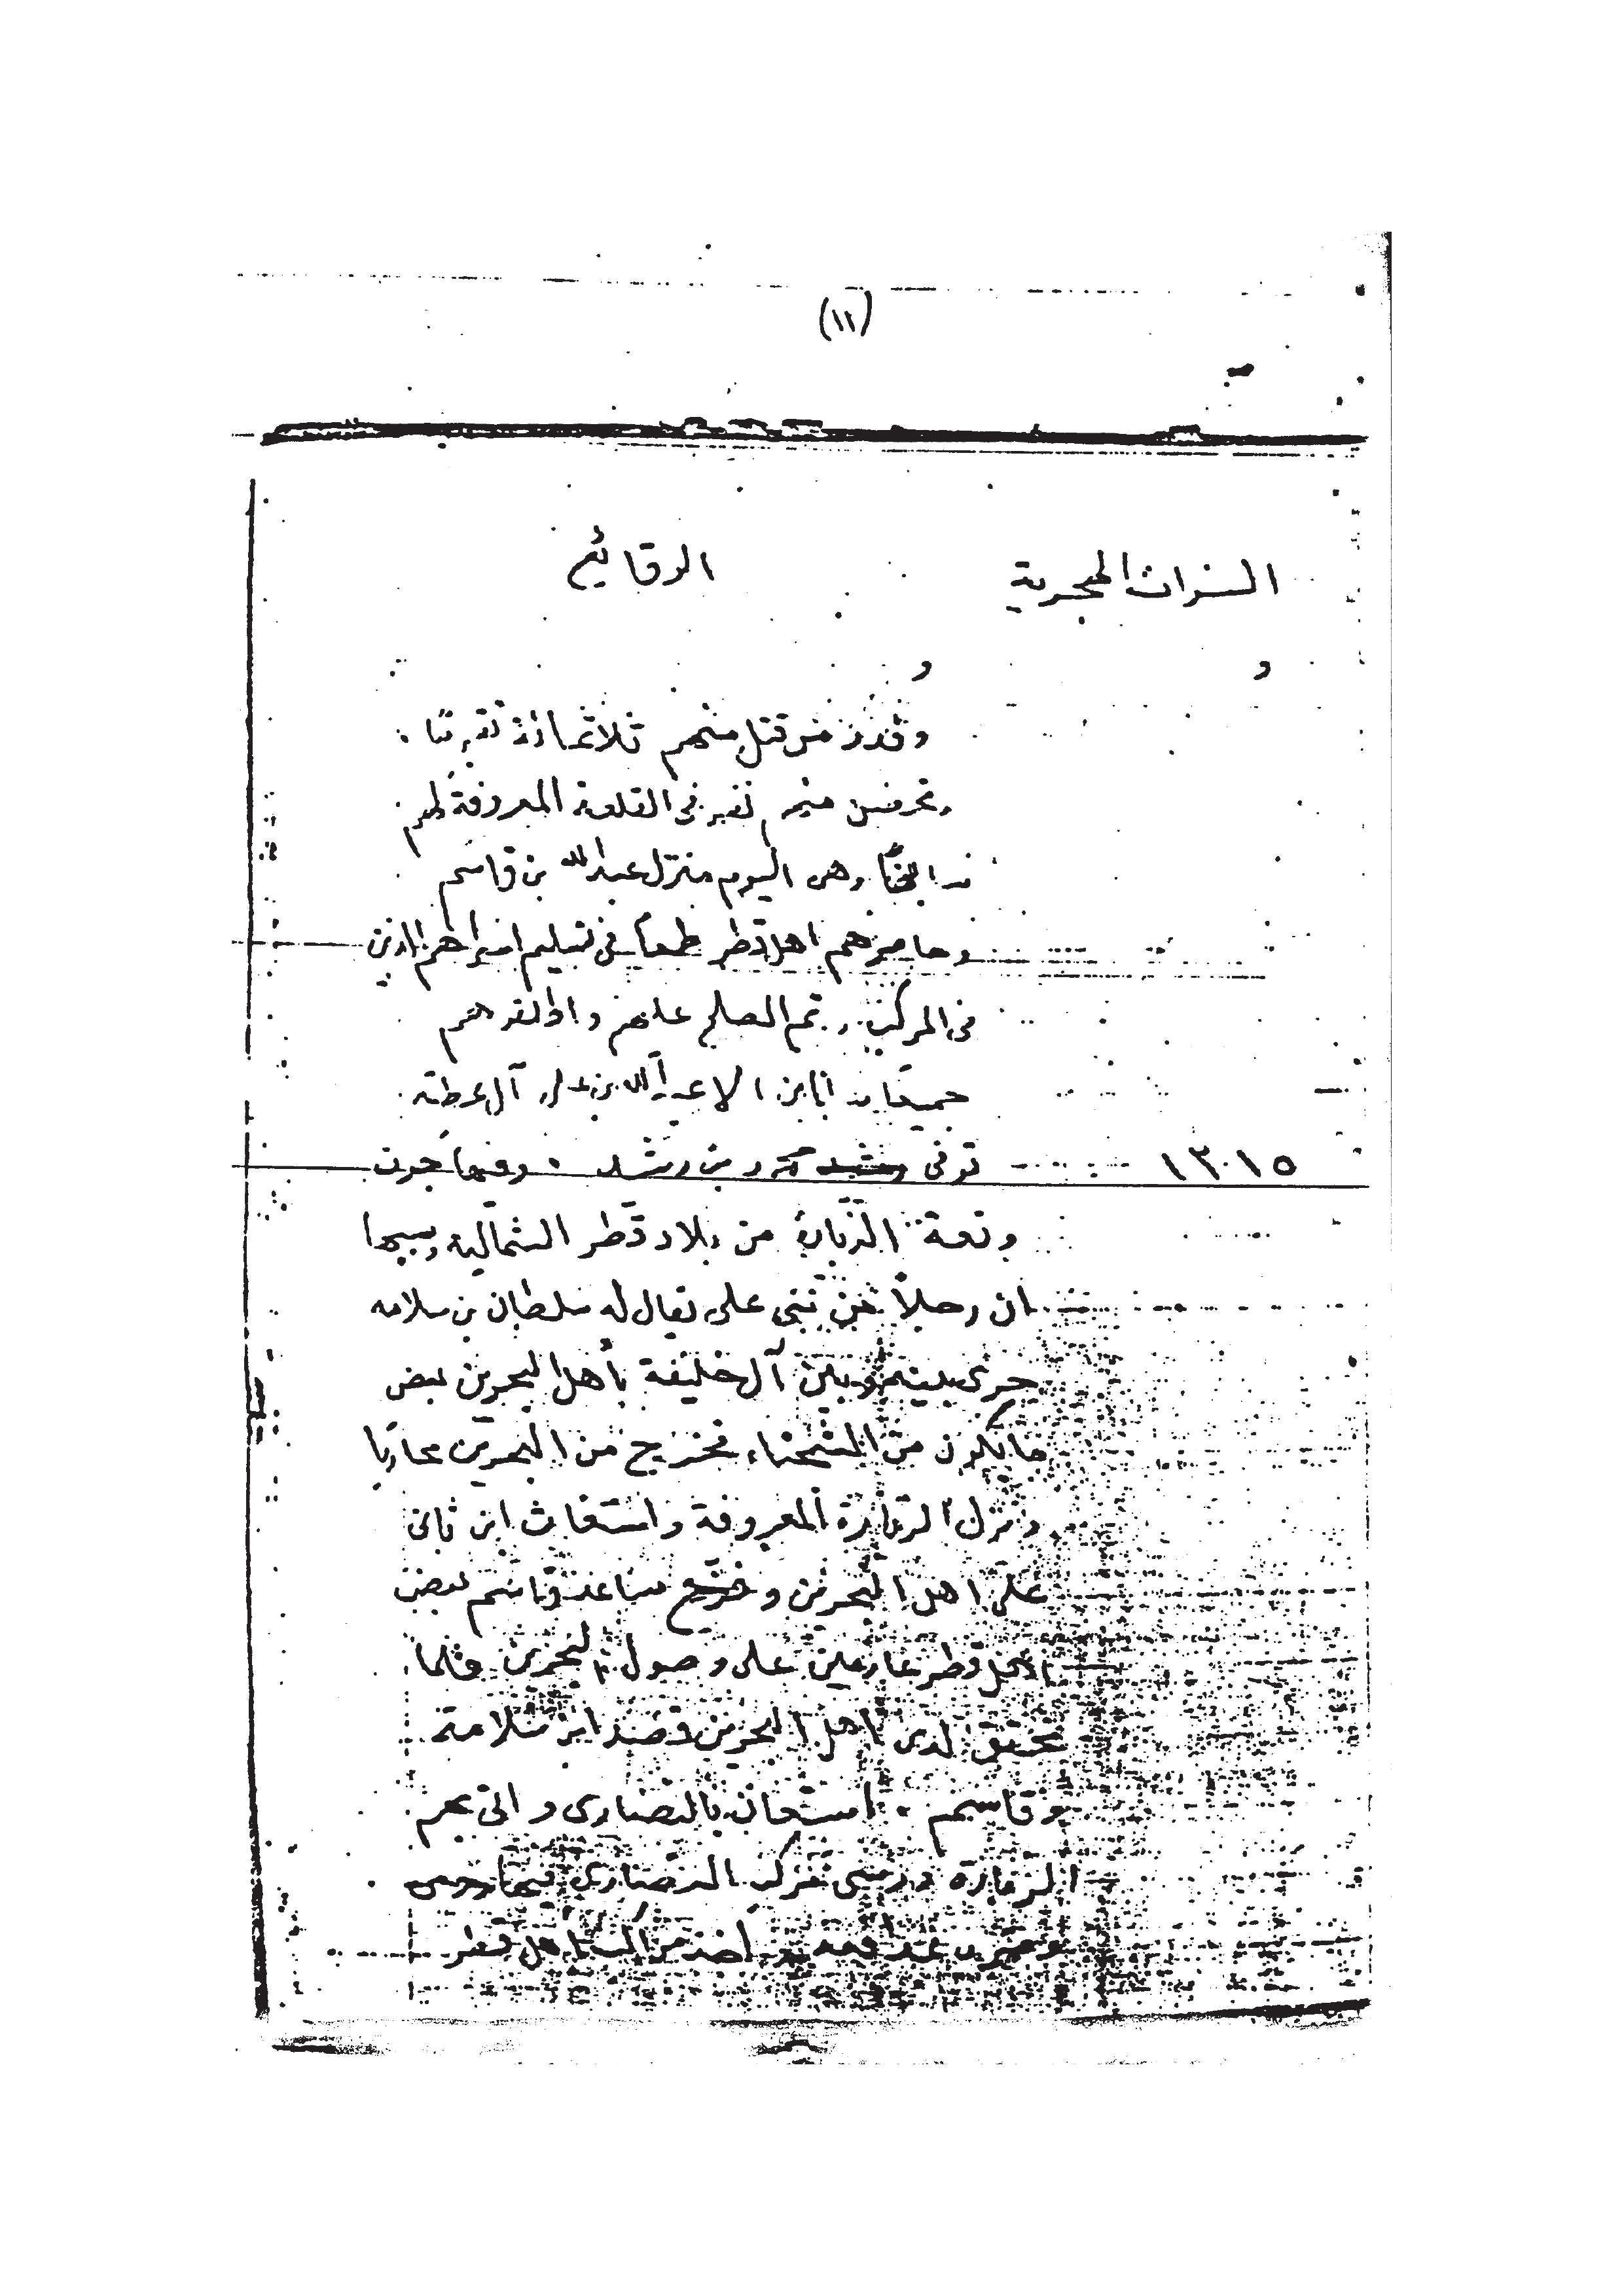 (١١)
السنوات الهجرية
الوقائع
و
و
وقدر من قتل منهم ثلاثمائة تقريبا
وتحرفس منهم نفر في القلعة المعروفة لهم
وهي اليوم منزل عبدالله بن قاسم
وحاصرهم اهل قطر طمعا في تسليم اسراهم الذين
في المركب وتم الصلح عليهم واطلقوهم
جميعا آل عطية
١٣٠١٥ توفي بن رشيد . وفيها جرت
وقعة الزبارة من بلاد قطر الشمالية وسببها
ان رجلا من بني علي يقال له سلطان بن سلامه
جرى بينه وبين آل خليفة بأهل البحرين بعض
ما يكون من الشحناء فخرج من البحرين محاربا
ونزل الزبارة المعروفة واستغاث ابن ثاني
على اهل البحرين و ساعد قاسم بعض
اهل قطر عازمين على وصول البحرين فلما
تحقق لدى اهل البحرين قصد ابن سلامة
وقاسم . استعان بالنصارى واتى بهم
الزبارة ورسى مركب النصارى فيها
اهل قطر